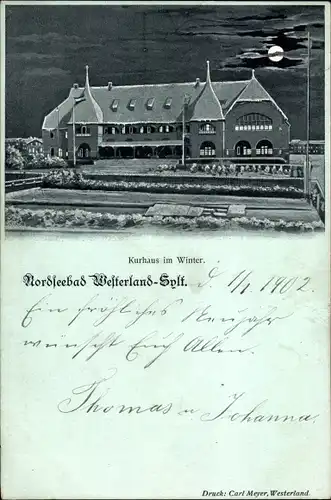 Kurhaus im Winter.
Nordseebad Westerland-Sylt. d. 1/1 1902
Ein fröhliches Neujahr
wünscht Euch Allen
Thomas u. Johanna.
Druck: Carl Meyer, Westerland.